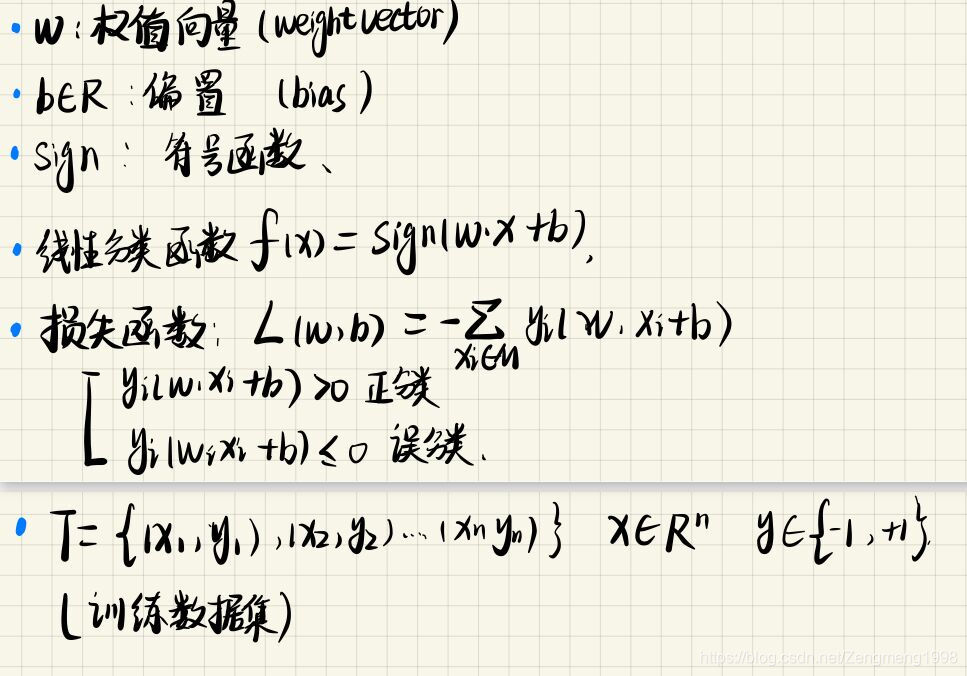 • w:权值向量(weight vector)
• b∈R:偏置 (bias)
• sign: 符号函数、
• 线性分类函数 f(x)=sign(w·x+b),
• 损失函数: L(w,b)=-∑ yi(w·xi+b)
xi∈M
[ yi(w·xi+b)>0 正分类
yi(w·xi+b)≤0 误分类.
• T={(x1,y1),(x2,y2)...(xn yn)} x∈Rⁿ y∈{-1,+1}.
(训练数据集)
https://blog.csdn.net/Zengmeng1998